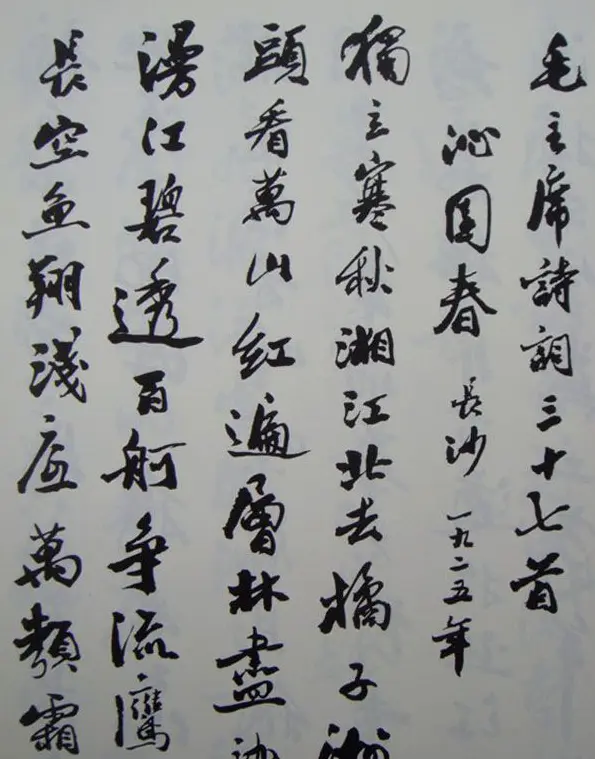 毛主席詩詞三十七首
沁園春 長沙 一九二五年
獨立寒秋湘江北去橘子洲
頭看萬山紅遍層林盡
漫江碧透百舸争流鷹
長空魚翔淺底萬類霜